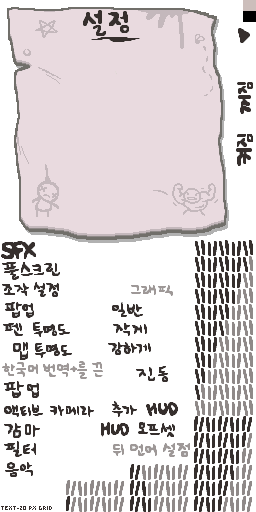 설정
SFX
풀스크린
조작 설정 그래픽
팝업 일반
펜 투명도 작게
맵 투명도 강하게
한국어 번역+를 끈
진동
팝업
액티브 카메라 추가 HUD
감마 HUD 오프셋
필터 뒤 먼어 설정
음악
TEXT-20 PX GRID